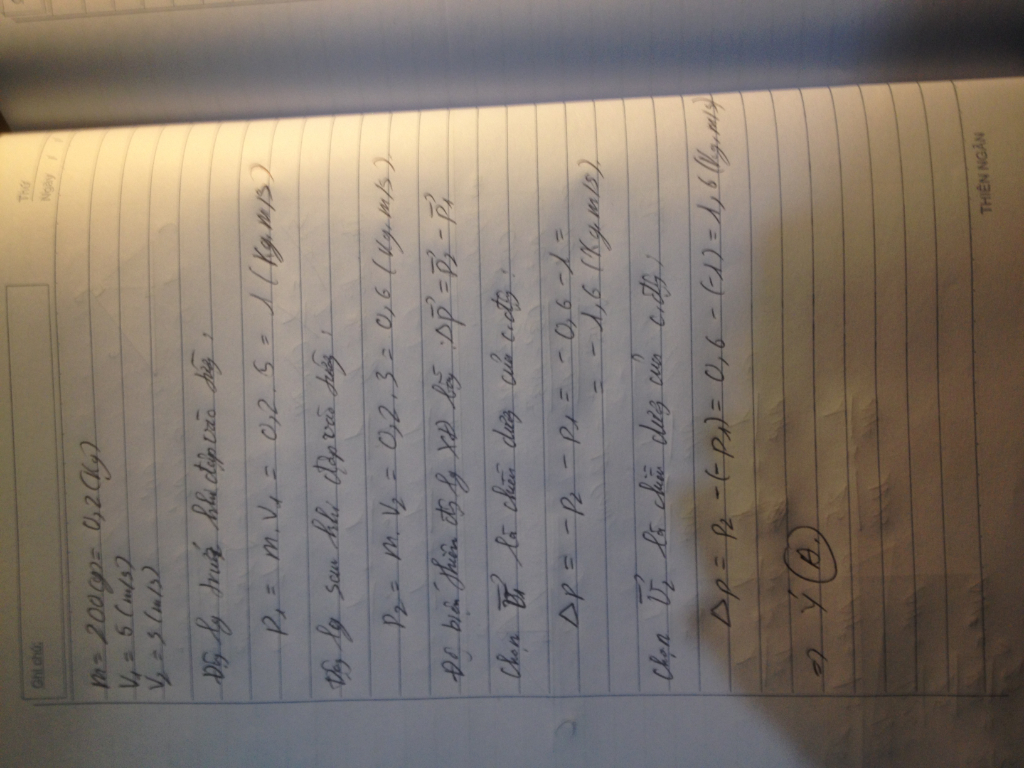 Thứ
Ngày / /
Ghi chú
m = 200(g) = 0,2 (kg)
V₁ = 5 (m/s)
V₂ = 3 (m/s)
Đg lg trước khi đập vào tường:
P₁ = m.V₁ = 0,2 . 5 = 1 (Kg.m/s)
Đg lg sau khi đập vào tường:
P₂ = m.V₂ = 0,2.3 = 0,6 (Kg.m/s)
Độ biến thiên đg lg của bóng: Δp⃗ = p⃗₂ - p⃗₁
Chọn v⃗₁ là chiều dương của c.động:
ΔP = - P₂ - P₁ = - 0,6 - 1 =
= - 1,6 (Kg.m/s)
Chọn v⃗₂ là chiều dương của c.động:
ΔP = P₂ - (-P₁) = 0,6 - (-1) = 1,6 (Kg.m/s)
=> Ý A.
THIÊN NGÂN